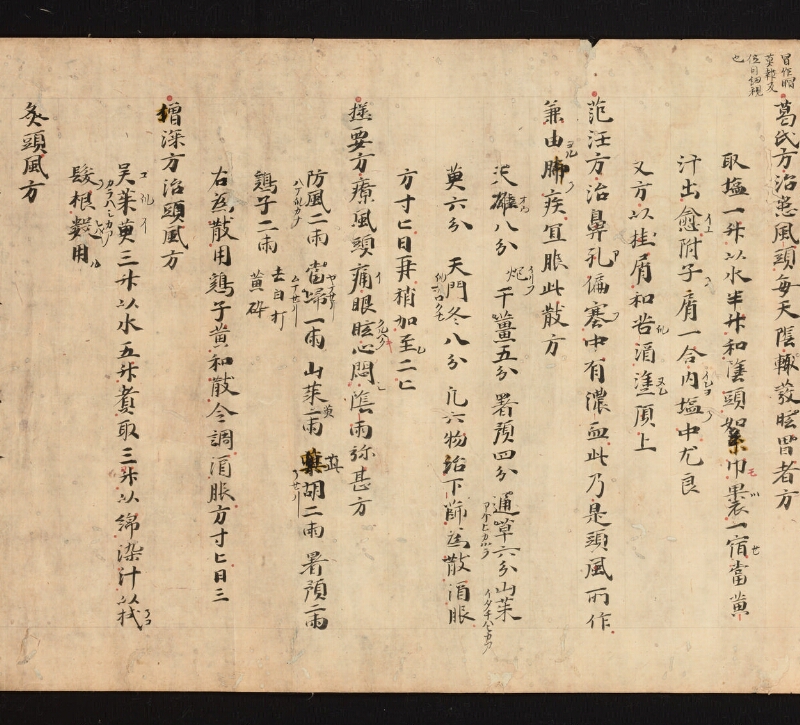 葛氏方治患風頭毎天陰輙發眩冒者方
取塩一升以水半升和塗頭如絮巾裹一宿當黄
汁出愈附子屑一合内塩中尤良
又方以桂屑和苦酒塗頂上
范汪方治鼻孔偏塞中有濃血此乃是頭風所作
兼由肺疾宜服此散方
天雄八分 炮 干薑五分 署預四分 通草六分 山茱
萸六分 天門冬八分 凢六物治下篩為散酒服
方寸匕日再稍加至二匕
㨿要方療風頭痛眼眩心悶陰雨弥甚方
防風二両 當歸一両 山茱萸一両 藁胡二両 署預二両
鷄子二両 去白打黄砕
右為散用鷄子黄和散令調酒服方寸匕日三
僧深方治頭風方
吴茱萸三升以水五升煮取三升以綿染汁以拭
髮根數用
灸頭風方